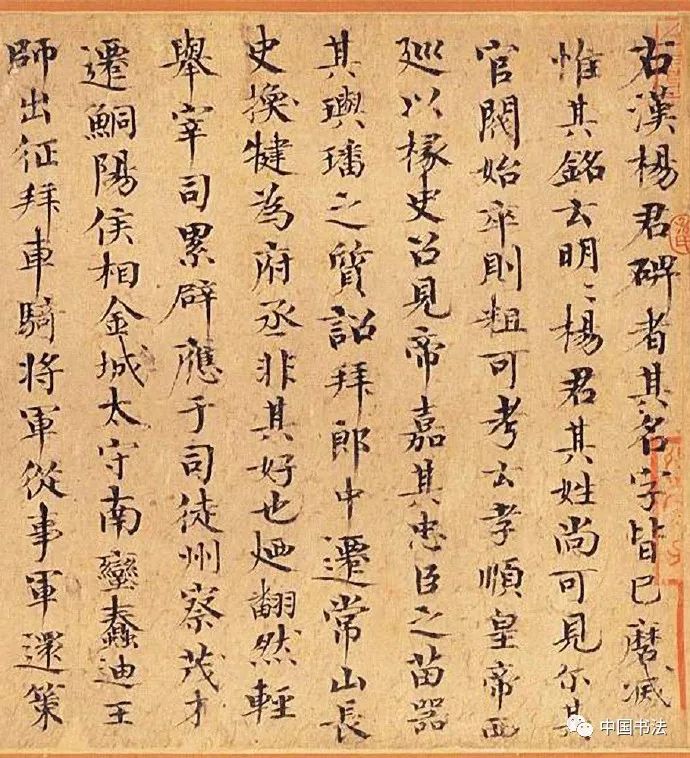 右漢楊君碑者其名字皆已磨滅
惟其銘云明〻楊君其姓尚可見尔其
官閥始卒則粗可考云孝順皇帝西
巡以椽史召見帝嘉其忠臣之苗器
其璵璠之質詔拜郎中遷常山長
史換犍為府丞非其好也迺翻然輕
舉宰司累辟應于司徒州察茂才
遷鮦陽侯相金城太守南蠻蠢迪王
師出征拜車騎将軍從事軍還策
中国书法